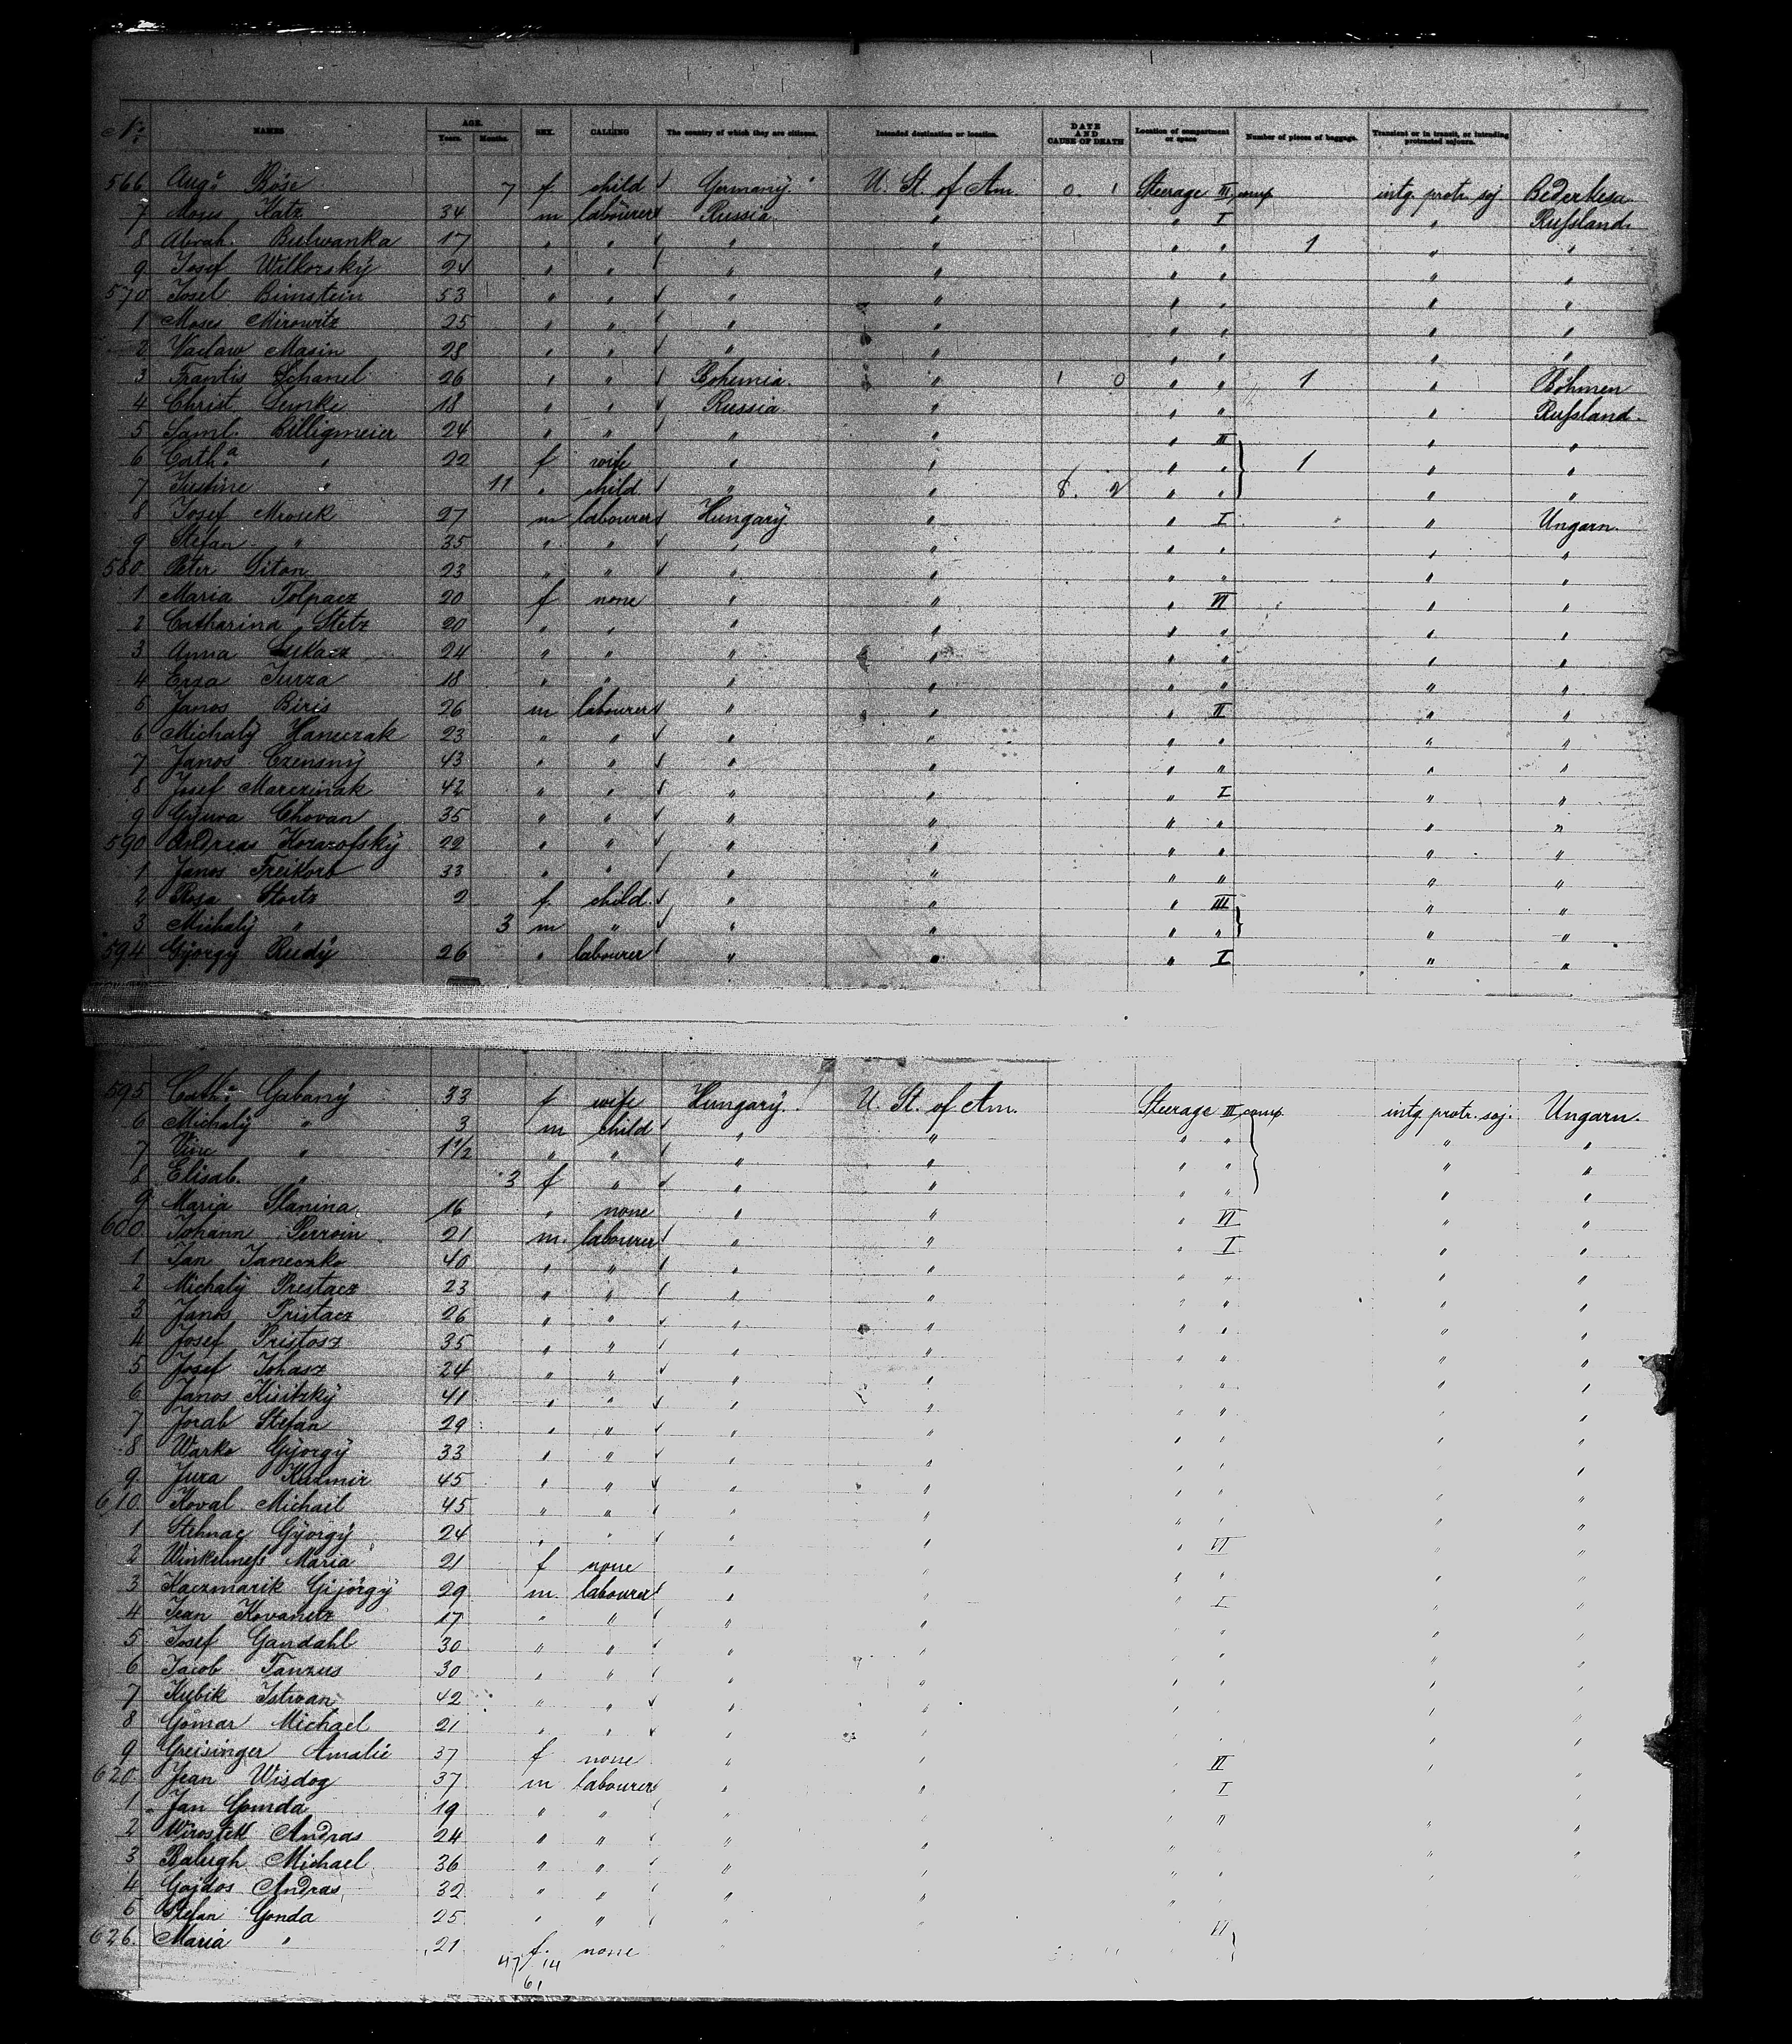 No. NAMES AGE. Years. Months. SEX. CALLING The country of which they are citizens. Intended destination or location. DATE AND CAUSE OF DEATH Location of compartment or space Number of pieces of baggage. Transient or in transit, or intending protracted sojourn.
566 Aug.e Böse 7 f child Germany. U. St. of Am. 0. 1 Steerage III comp intg. protr. soj. Bederkesa
7 Moses Katz 34 m labourer Russia " " I " Rußland.
8 Abrah. Bulwanka 17 " " " " " " 1 " "
9 Josef Wilkorsky 24 " " " " " " " "
570 Josel Bimstein 53 " " " " " " " "
1 Moses Mirowitz 25 " " " " " " " "
2 Vaclaw Masin 28 " " " " " " " "
3 Frantis Schanel 26 " " Bohemia. " 1 0 " " 1 " Böhmen
4 Christ Lemke 18 " " Russia " " " " Rußland.
5 Saml. Billigmeier 24 " " " " " III " "
6 Cath.a " 22 f wife " " " " 1 " "
7 Justine " 11 " child " " 8. 2 " " " "
8 Josef Mrosek 27 m labourer Hungary " " I " Ungarn.
9 Stefan " 35 " " " " " " " "
580 Peter Titon 23 " " " " " " " "
1 Maria Tolpacz 20 f none " " " VI " "
2 Catharina Stetz 20 " " " " " " " "
3 Anna Lukacz 24 " " " " " " " "
4 Erza Jurza 18 " " " " " " " "
5 Janos Biris 26 m labourer " " " II " "
6 Michaly Haneczak 23 " " " " " " " "
7 Janos Czensny 43 " " " " " " " "
8 Josef Marczinak 42 " " " " " I " "
9 Gyura Chovan 35 " " " " " " " "
590 Andreas Kozarofsky 22 " " " " " " " "
1 Janos Freikorb 33 " " " " " " " "
2 Rosa Stoitz 2 f child " " " III " "
3 Michaly " 3 m " " " " " " "
594 György Rudy 26 " labourer " " " I " "
595 Cath.a Gabany 33 f wife Hungary. U. St. of Am. Steerage III comp. intg. protr. soj. Ungarn.
6 Michaly " 3 m child " " " " " "
7 Vinc " 1 1/2 " " " " " " " "
8 Elisab. " 3 f " " " " " " "
9 Maria Slanina 16 " none " " " VI " "
600 Johann Perroin 21 m. labourer " " " I " "
1 Jan Janeczko 40 " " " " " " " "
2 Michaly Prestacz 23 " " " " " " " "
3 Janos Pristacz 26 " " " " " " " "
4 Josef Pristosz 35 " " " " " " " "
5 Josef Johasz 24 " " " " " " " "
6 Janos Kisitzky 41 " " " " " " " "
7 Jorab Stefan 29 " " " " " " " "
8 Warko György 33 " " " " " " " "
9. Jura Kazmir 45 " " " " " " " "
610 Koval Michael 45 " " " " " " " "
1 Stehnac György 24 " " " " " VI " "
2 Winkelmeß Maria 21 f none " " " " " "
3 Kaczmarik Gijörgy 29 m. labourer " " " I " "
4 Jean Kovanetz 17 " " " " " " " "
5 Josef Gandahl 30 " " " " " " " "
6 Jacob Tanzus 30 " " " " " " " "
7 Kubik Istwan 42 " " " " " " " "
8 Gömar Michael 21 " " " " " " "
9 Greisinger Amalie 37 f none " " " VI " "
620 Jean Wisdog 37 m labourer " " " I " "
1 Jan Gomda 19 " " " " "
2 Wirostek Andras 24 " " " " " "
3 Balugh Michael 36 " " " " " "
4 Gajdos Andras 32 " " " "
5 Stefan Gonda 25 " " " VI
626. Maria " 21 f. none "
47/14
61